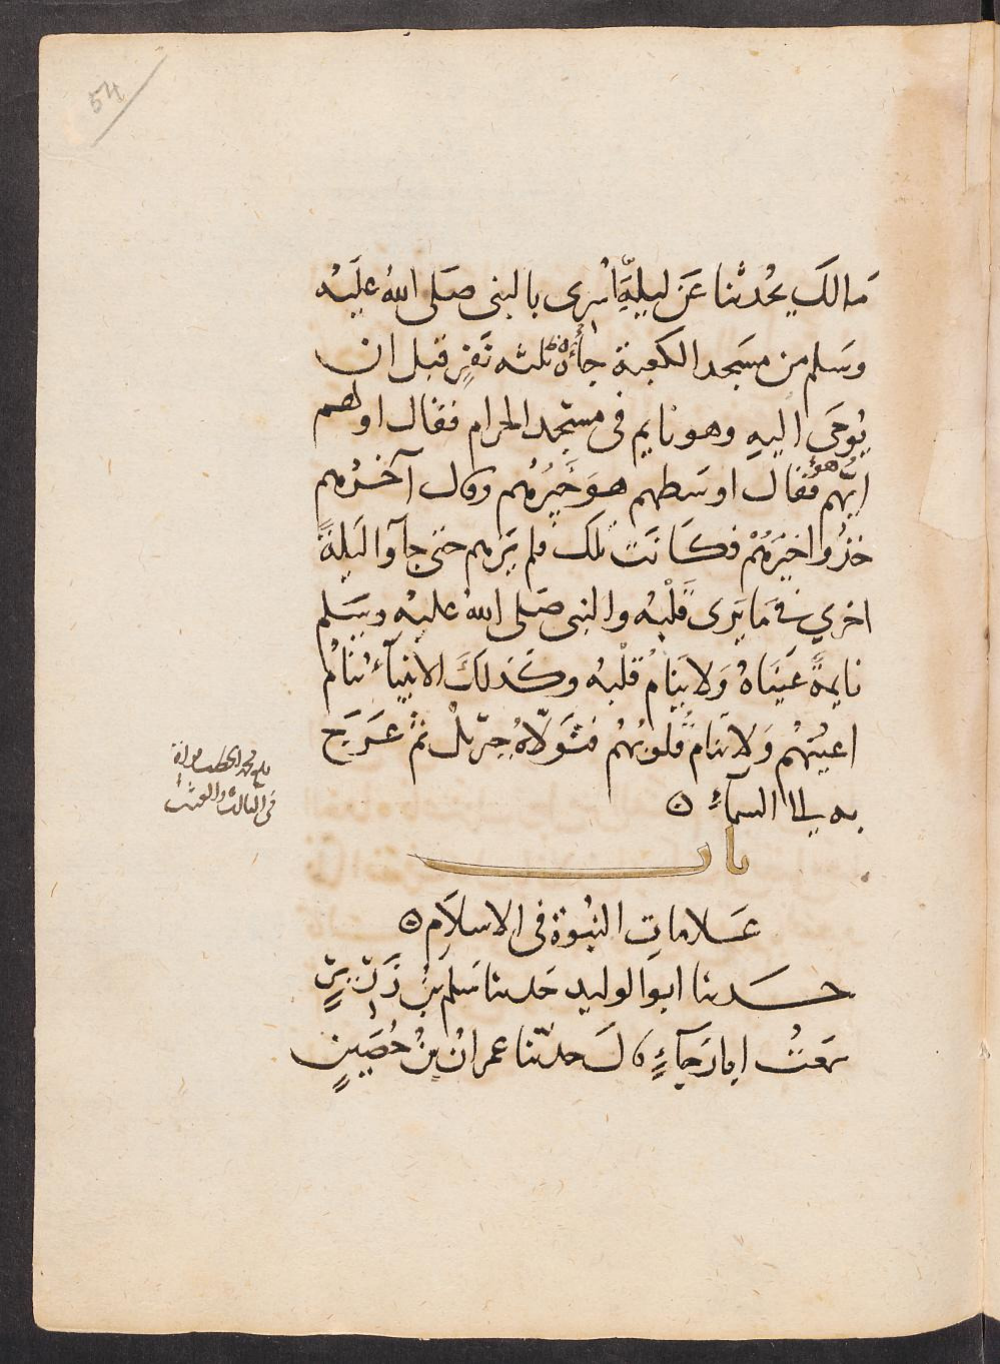 54
مالك يحدثنا عن ليلة اسرى بالنبى صلى الله عليه
وسلم من مسجد الكعبة جأه ثلثه نفر قبل ان
يوحى اليه وهو نايم فى مسجد الحرام فقال اولهم
ايهم هو فقال اوسطهم هو خيرهم وقال آخرهم
خذوا خيرهم فكانت تلك فلم يرهم حتى جآوا ليلة
اخرى فيما يرى قلبه والنبى صلى الله عليه وسلم
نايمة عيناه ولا ينام قلبه وكذلك الانبيآء تنام
اعينهم ولا تنام قلوبهم فتولاه جبريل ثم عرج
به الى السمآء ۞
باب
علامات النبوة فى الاسلام ۞
حدثنا ابو الوليد حدثنا سلم بن زرير
سمعت ابا رجآء قال حدثنا عمران بن حصين
بلغ محمد
فى الثالث والعشر